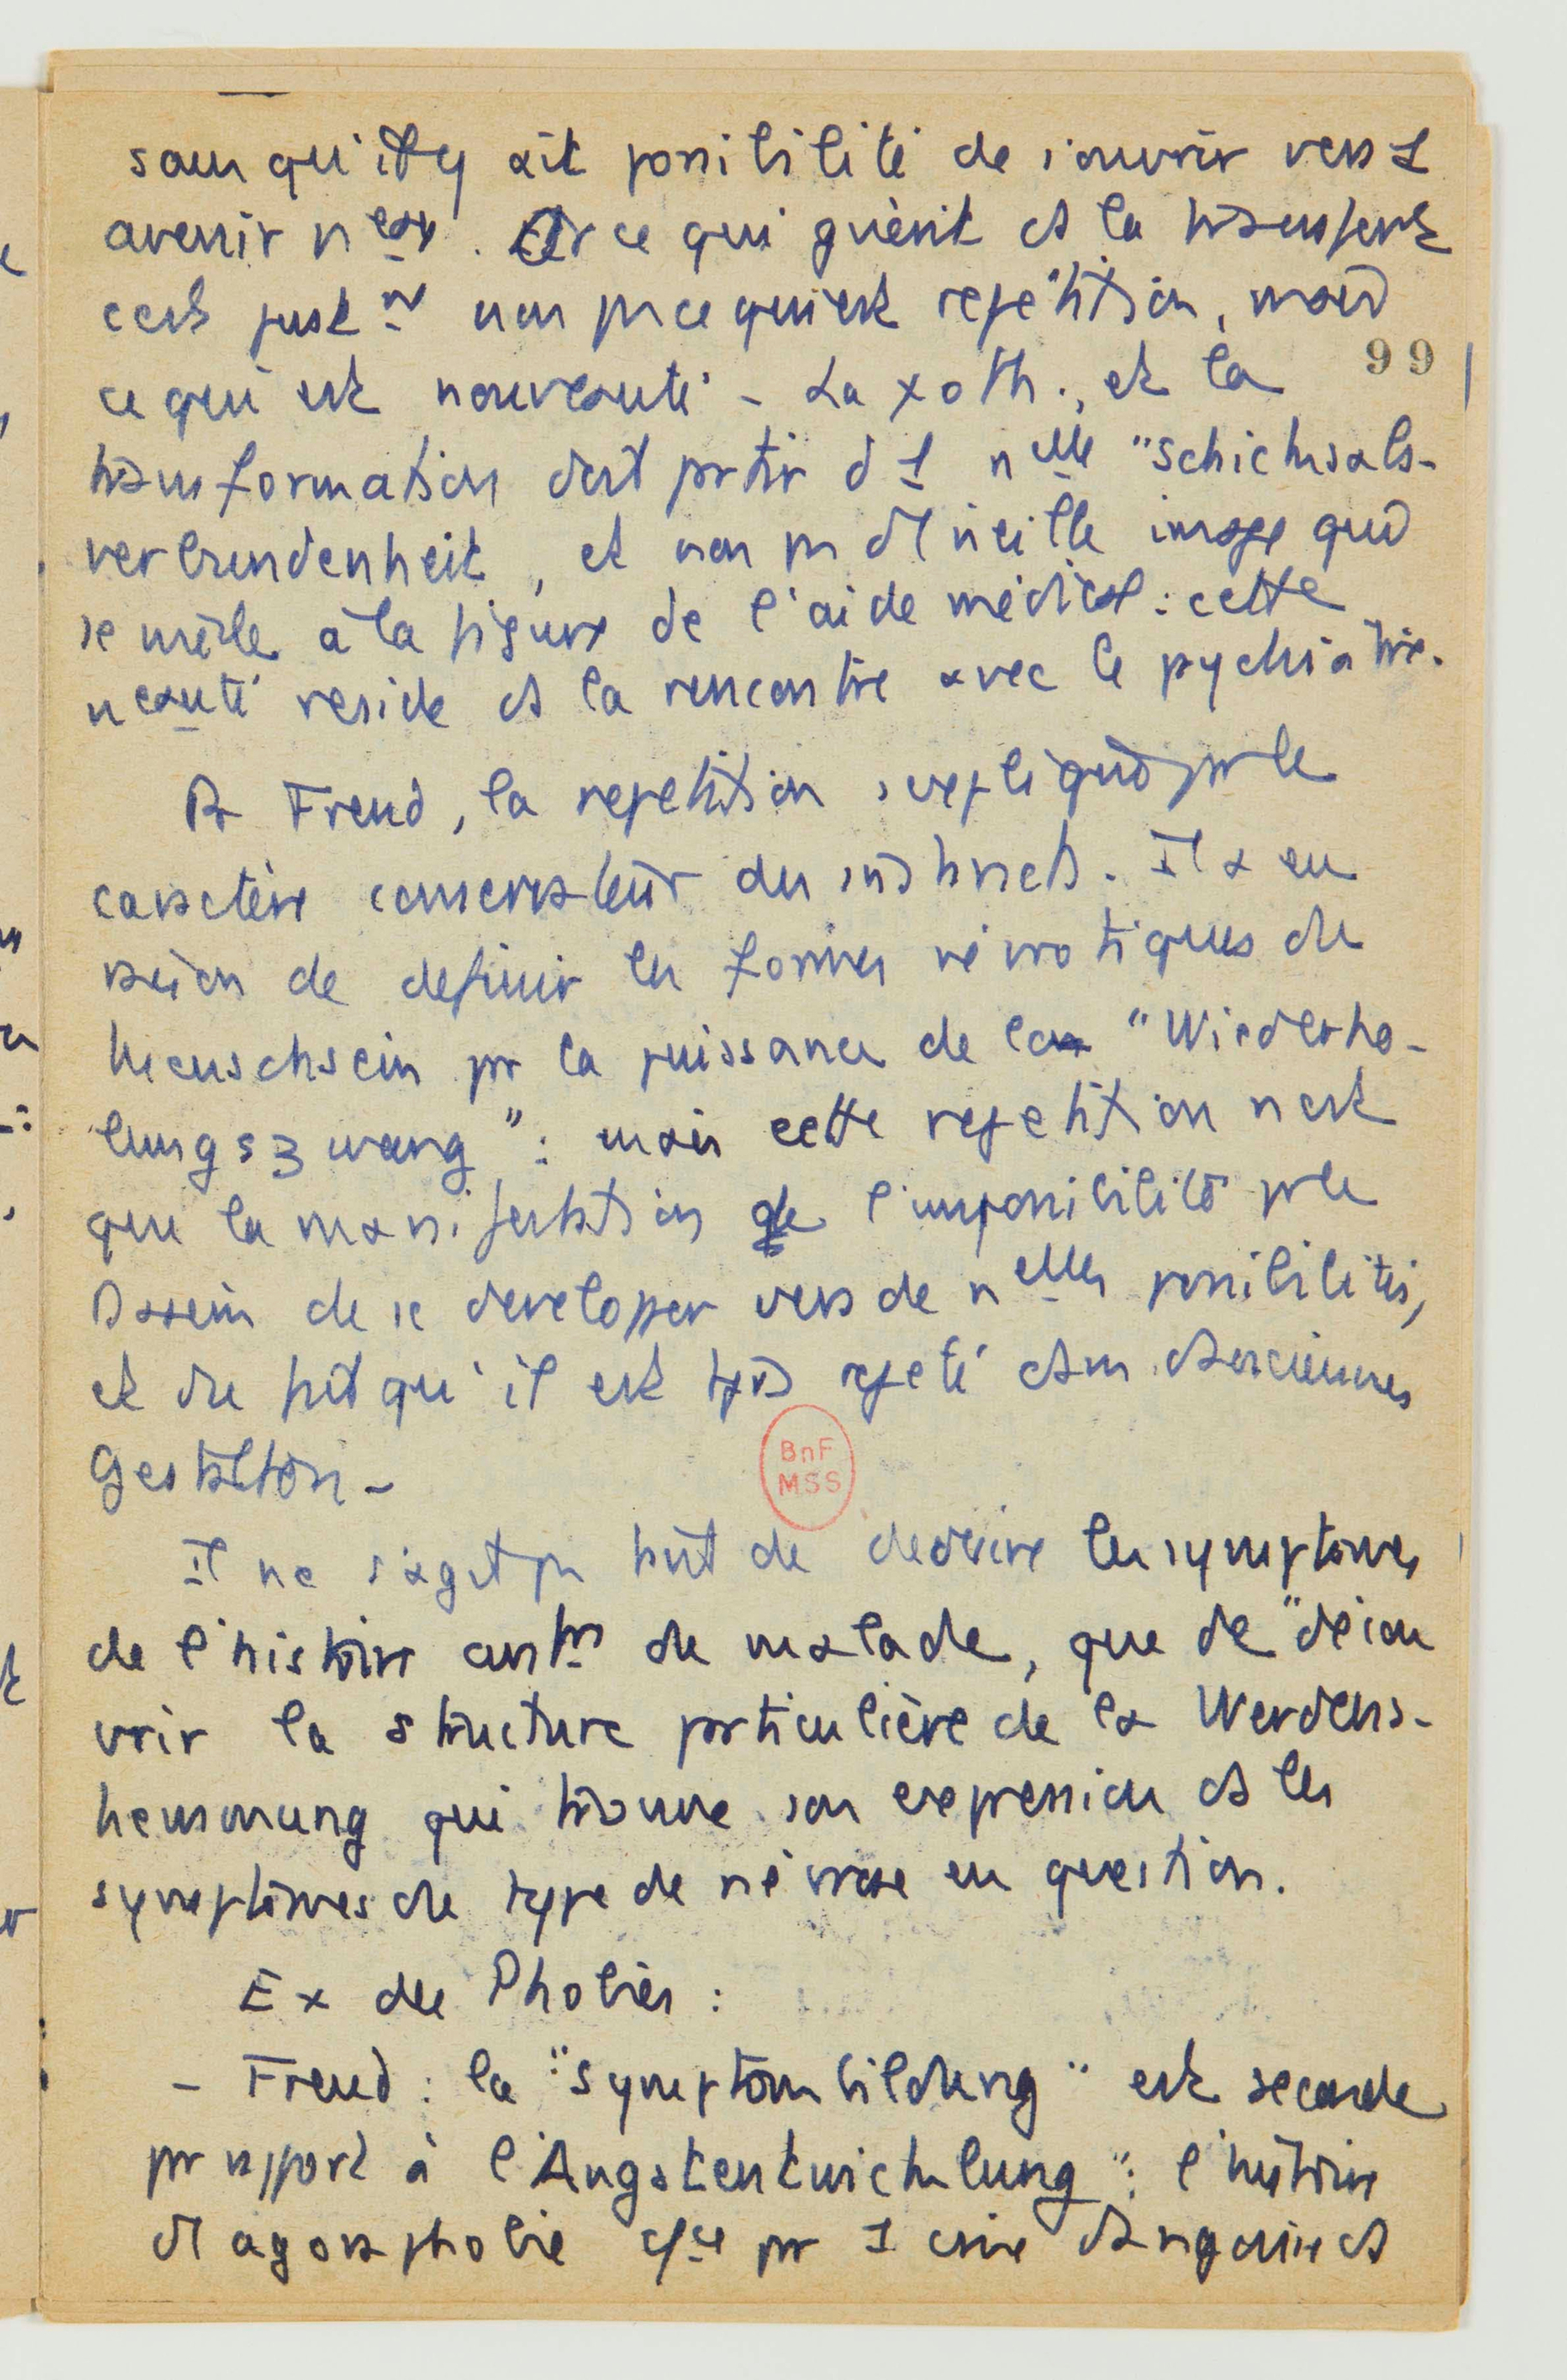 sans qu'il y ait possibilité de s'ouvrir vers 1
avenir neau. Or ce qui guérit ds la transfert
c'est justmt non pas ce qui est repetition, mais
99
ce qui est nouveauté - La ψoth., et la
transformation doit partir d'1 nelle "Schicksals-
verbundenheit, et non pas d'1 vieille image qui
se mêle à la figure de l'aide médical : cette
neauté reside ds la rencontre avec le psychiatre.
Pr Freud, la repetition s'explique par le
caractère conservateur des instincts. Il a eu
raison de definir les formes névrotiques du
Menschsein par la puissance de la "Wiederho-
lungszwang" : mais cette repetition n'est
que la manifestation de l'impossibilité pr le
Dasein de se developper vers de nelles possibilités,
et du fait qu'il est tjrs rejeté ds ses anciennes
Gestalten -
BnF
MSS
Il ne s'agit pas tant de deduire les symptomes
de l'histoire du malade, que de "décou
vrir la structure particulière de la Werdens-
hemmung qui trouve son expression ds les
symptomes du type de névrose en question.
Ex des Phobies :
- Freud : la "Symptombildung" est seconde
par rapport à l'Angstentwicklung" : l'histoire
d'1 agoraphobie par 1 crise d'angoisse ds